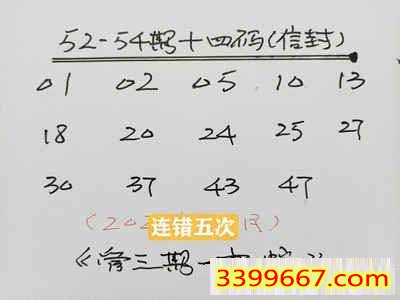 52-54期十四码(信封)
01 02 05 10 13
18 20 24 25 27
30 37 43 47
(20
连错五次
三期一
3399667.com